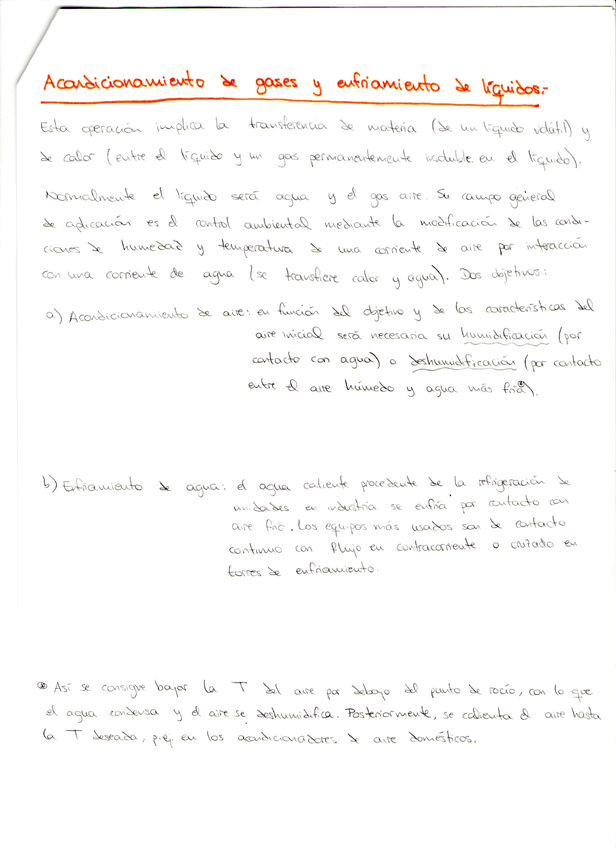 Acondicionamiento de gases y enfriamiento de líquidos.-
Esta operación implica la transferencia de materia (de un líquido volátil) y
de calor (entre el líquido y un gas permanentemente insoluble en el líquido).
Normalmente el líquido será agua y el gas aire. Su campo general
de aplicación es el control ambiental mediante la modificación de las condi-
ciones de humedad y temperatura de una corriente de aire por interacción
con una corriente de agua (se transfiere calor y agua). Dos objetivos:
a) Acondicionamiento de aire: en función del objetivo y de las características del
aire inicial será necesaria su humidificación (por
contacto con agua) o deshumidificación (por contacto
entre el aire húmedo y agua más fría⊛).
b) Enfriamiento de agua: el agua caliente procedente de la refrigeración de
unidades en industria se enfría por contacto con
aire frío. Los equipos más usados son de contacto
continuo con flujo en contracorriente o cruzado en
torres de enfriamiento.
⊛ Así se consigue bajar la T del aire por debajo del punto de rocío, con lo que
el agua condensa y el aire se deshumidifica. Posteriormente, se calienta el aire hasta
la T deseada, p.ej. en los acondicionadores de aire domésticos.